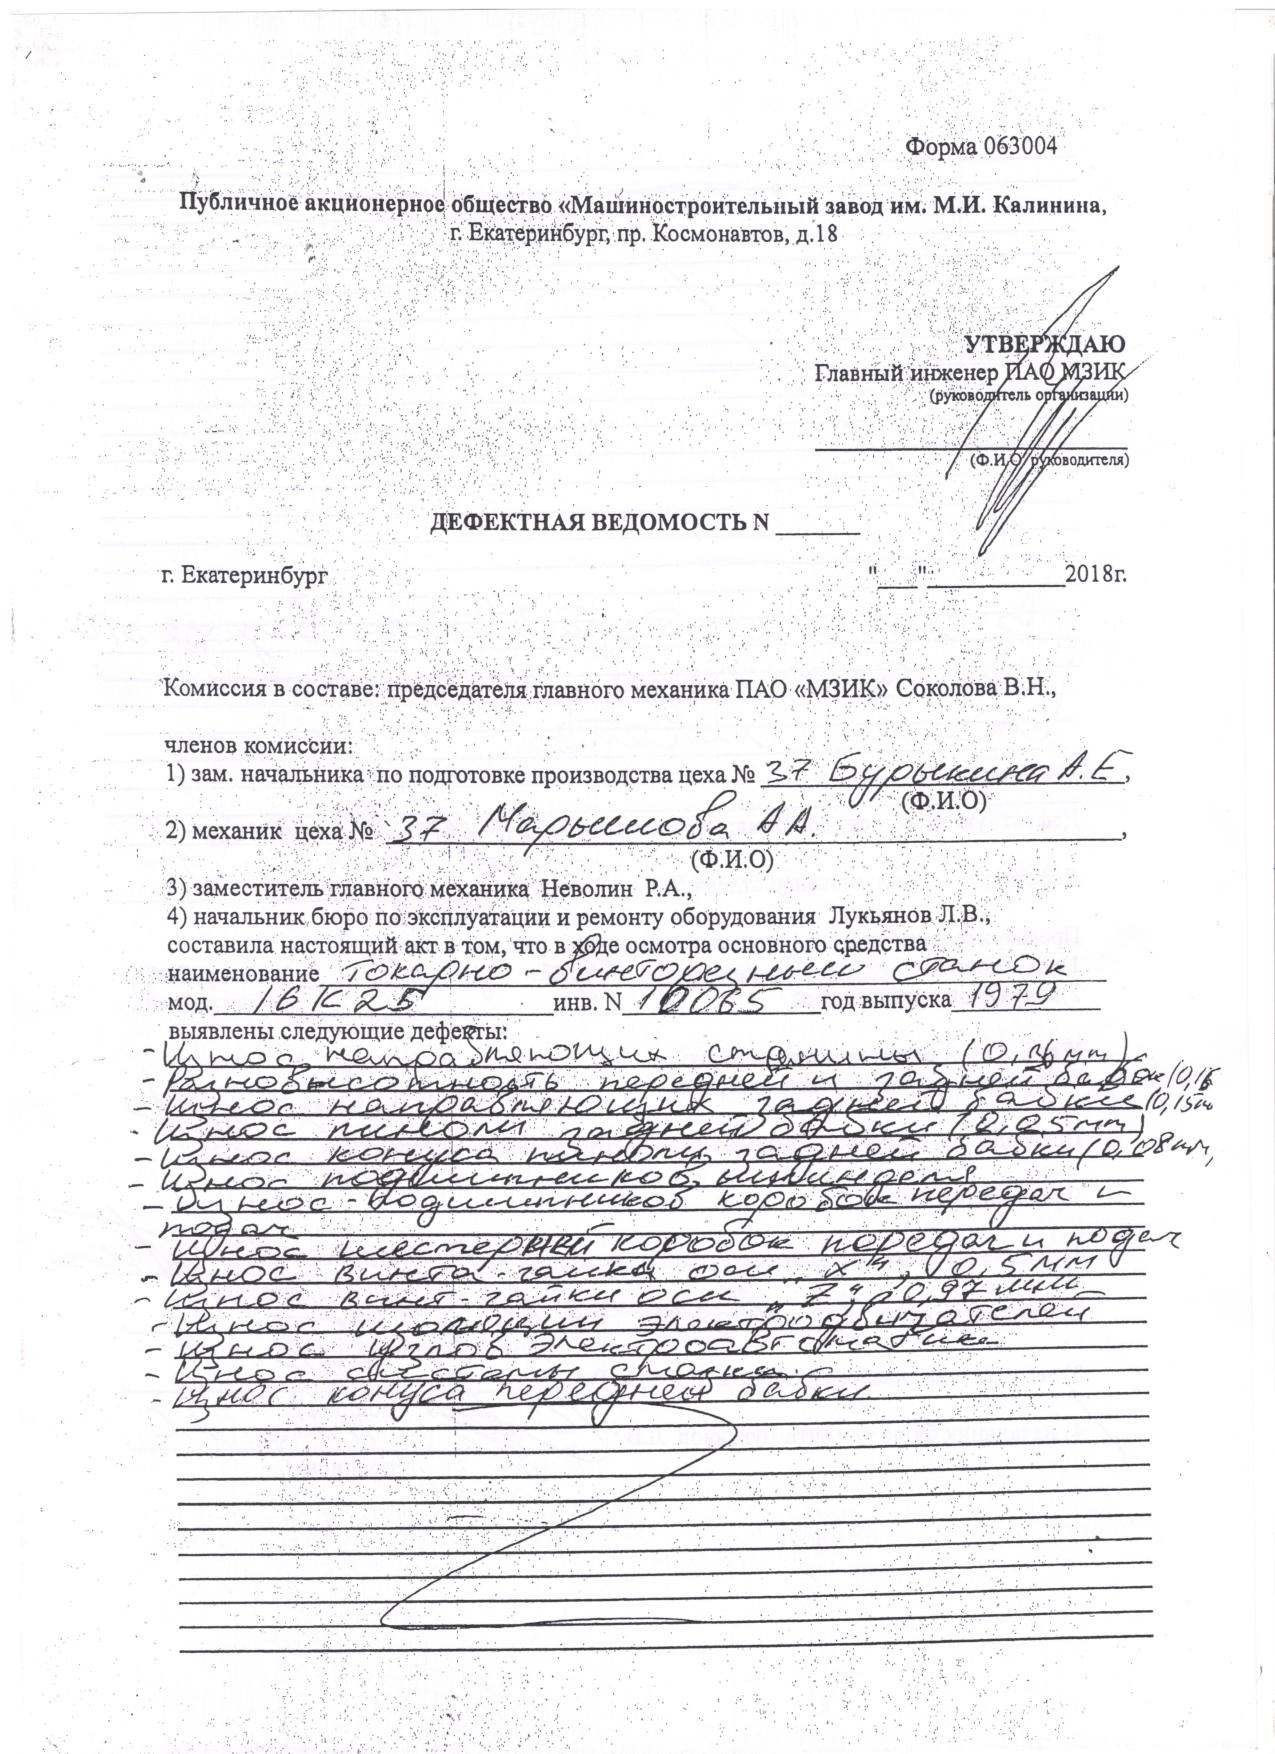 Форма 063004
Публичное акционерное общество «Машиностроительный завод им. М.И. Калинина,
г. Екатеринбург, пр. Космонавтов, д.18
УТВЕРЖДАЮ
Главный инженер ПАО МЗИК
(руководитель организации)
(Ф.И.О. руководителя)
ДЕФЕКТНАЯ ВЕДОМОСТЬ N ______
г. Екатеринбург "___"__________2018г.
Комиссия в составе: председателя главного механика ПАО «МЗИК» Соколова В.Н.,
членов комиссии:
1) зам. начальника по подготовке производства цеха № 37 Бурыкина А.Е,
(Ф.И.О)
2) механик цеха № 37 А А.,
(Ф.И.О)
3) заместитель главного механика Неволин Р.А.,
4) начальник бюро по эксплуатации и ремонту оборудования Лукьянов Л.В.,
составила настоящий акт в том, что в ходе осмотра основного средства
наименование Токарно-винторезный станок
мод. 16К25 инв. N 10065 год выпуска 1979
выявлены следующие дефекты:
- Износ направляющих станины
- Разновысотность передней и задней бабок (0,16
- Износ направляющих задней бабки (0,15
- Износ пиноли задней бабки (0,05мм)
- Износ конуса пиноли задней бабки (0,08мм,
- Износ подшипников шпинделя
- Износ подшипников коробок передач и
подач
- Износ шестерней коробок передач и подач
- Износ винта-гайки оси „X", 0,5мм
- Износ винт-гайки оси „Z" 0,97мм
- Износ изоляции электродвигателей
- Износ узлов электроавтоматики
- Износ системы смазки.
- Износ конуса передней бабки